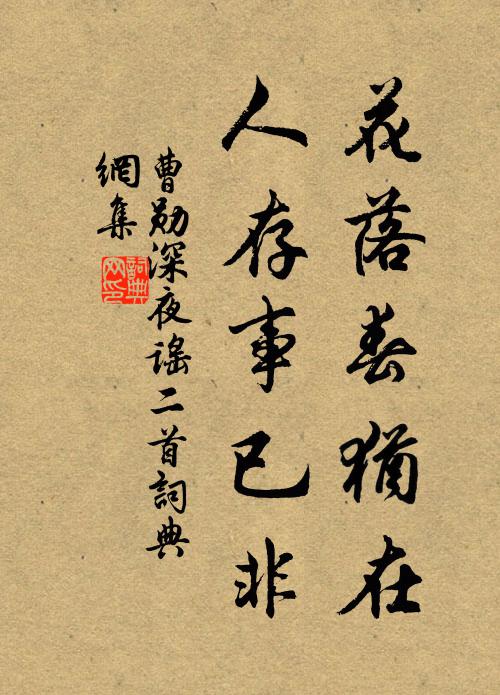 花落春猶在
人存事已非
曹勛深夜謠二首詞典
網集
詞典
网印